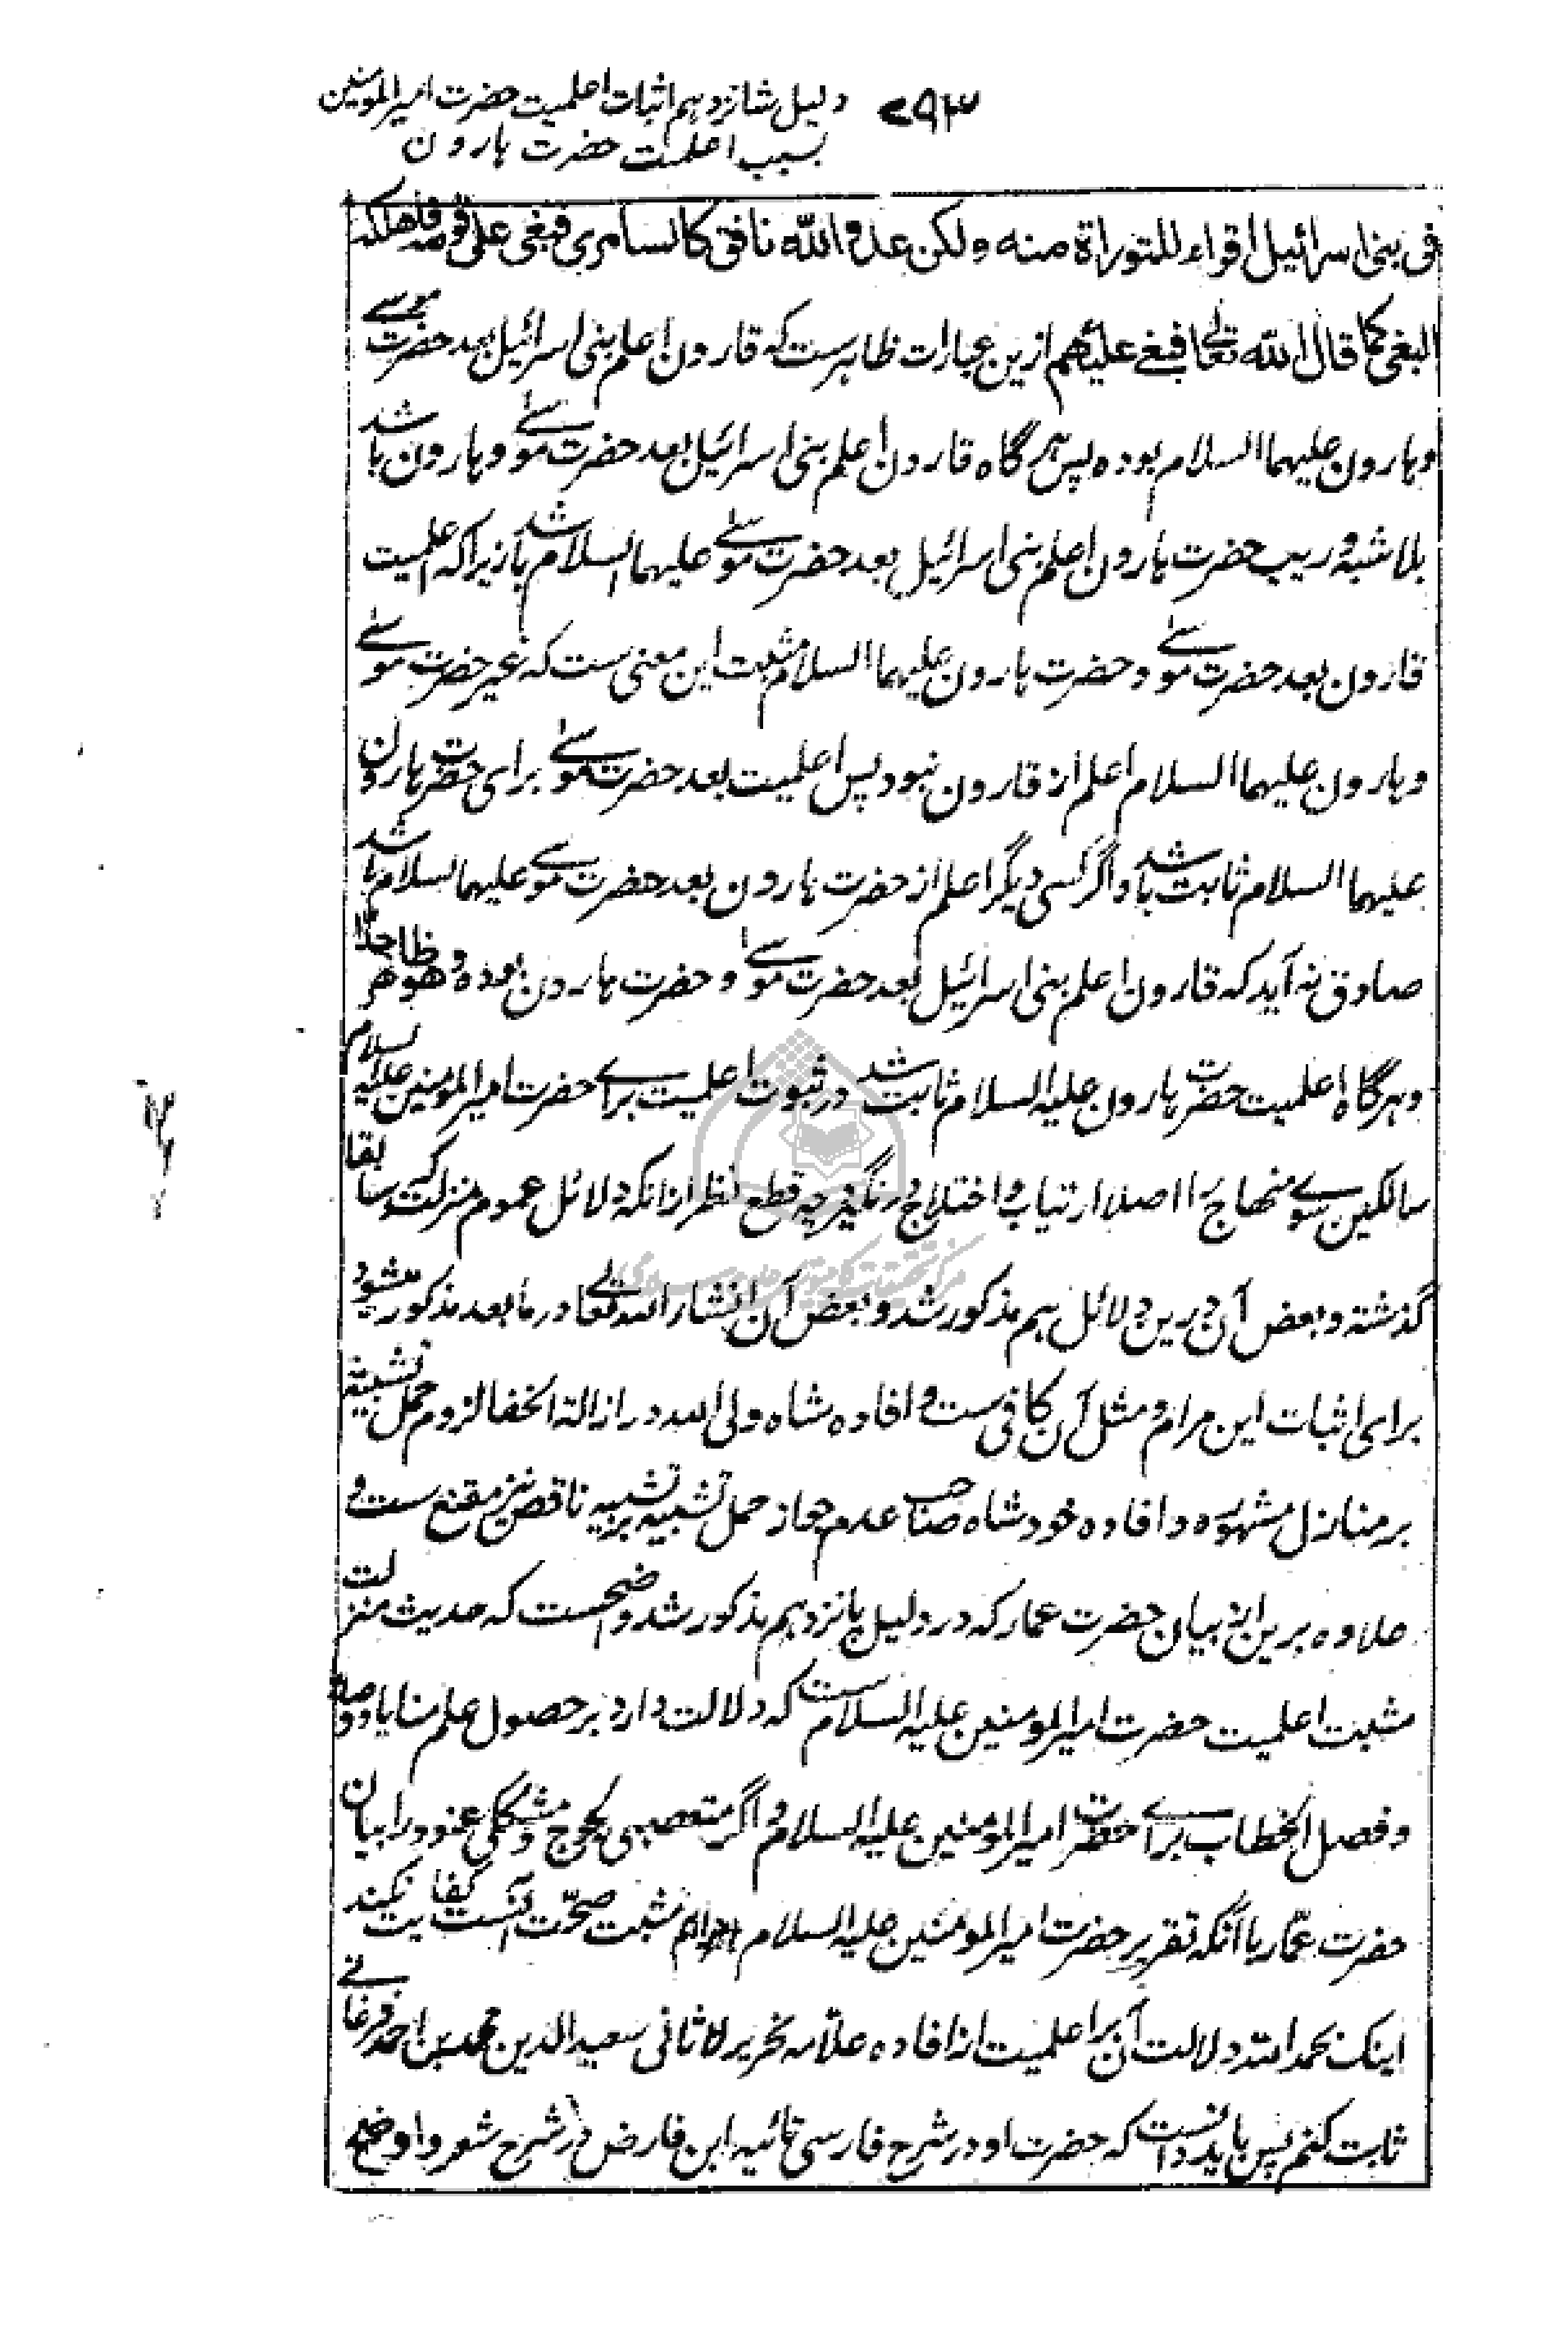 ۷۹۳ دلیل شانزدهم اثبات اعلمیت حضرت امیرالمومنین
بسبب اعلمیت حضرت هارون
فی بنی اسرائیل اقراء للتوراة منه ولکن عدو الله نافق کالسامری فبغی علی قومه فاهلکه
البغی کما قال الله تعالی فبغی علیهم ازین عبارات ظاهرست که قارون اعلم بنی اسرائیل بعد حضرت موسی
وهارون علیهما السلام بوده پس هرگاه قارون اعلم بنی اسرائیل بعد حضرت موسی وهارون باشد
بلا شبه وریب حضرت هارون اعلم بنی اسرائیل بعد حضرت موسی علیهما السلام باشد زیرا که اعلمیت
قارون بعد حضرت موسی وحضرت هارون علیهما السلام مثبت این معنی ست که غیر حضرت موسی
وهارون علیهما السلام اعلم از قارون نبود پس اعلمیت بعد حضرت موسی برای حضرت هارون
علیهما السلام ثابت باشد واگر کسی دیگر اعلم از حضرت هارون بعد حضرت موسی علیهما السلام باشد
صادق نه آید که قارون اعلم بنی اسرائیل بعد حضرت موسی و حضرت هارون بوده وهو ظاهر جدا
وهرگاه اعلمیت حضرت هارون علیه السلام ثابت شد در ثبوت اعلمیت برای حضرت امیرالمومنین علیه السلام
سالکین سوی منهاج را اصلا ارتیاب واختلاج رنگیرد چه قطع نظر ازانکه دلائل عموم منزلت که سابقا
گذشته وبعض آن درین دلائل هم مذکور شد وبعض آن انشاء الله تعالی در مابعد مذکور میشود
برای اثبات این مرام ومثل آن کافی ست وافاده شاه ولی الله در ازالة الخفا لزوم حمل تشبیه
بر منازل مشهوره وافاده خود شاه صاحب عدم جواز حمل تشبیه بر تشبیه ناقص نیز مقنع ست و
علاوه برین از بیان حضرت عمار که در دلیل پانزدهم مذکور شد واضحست که حدیث منزلت
مثبت اعلمیت حضرت امیرالمومنین علیه السلام ست که دلالت دارد بر حصول علم منایا ووصایا
وفصل الخطاب برای حضرت امیرالمومنین علیه السلام واگر متعصبی لجوج ومشککی عنود را بیان
حضرت عمار با آنکه تقریر حضرت امیرالمومنین علیه السلام مثبت صحت آنست کفایت نکند
اینک بحمد الله دلالت آن بر اعلمیت از افاده علامه نحریر لاثانی سعید الدین محمد بن احمد فرغانی
ثابت کنم پس باید دانست که حضرت او در شرح فارسی تائیه ابن فارض در شرح شعر واوضح